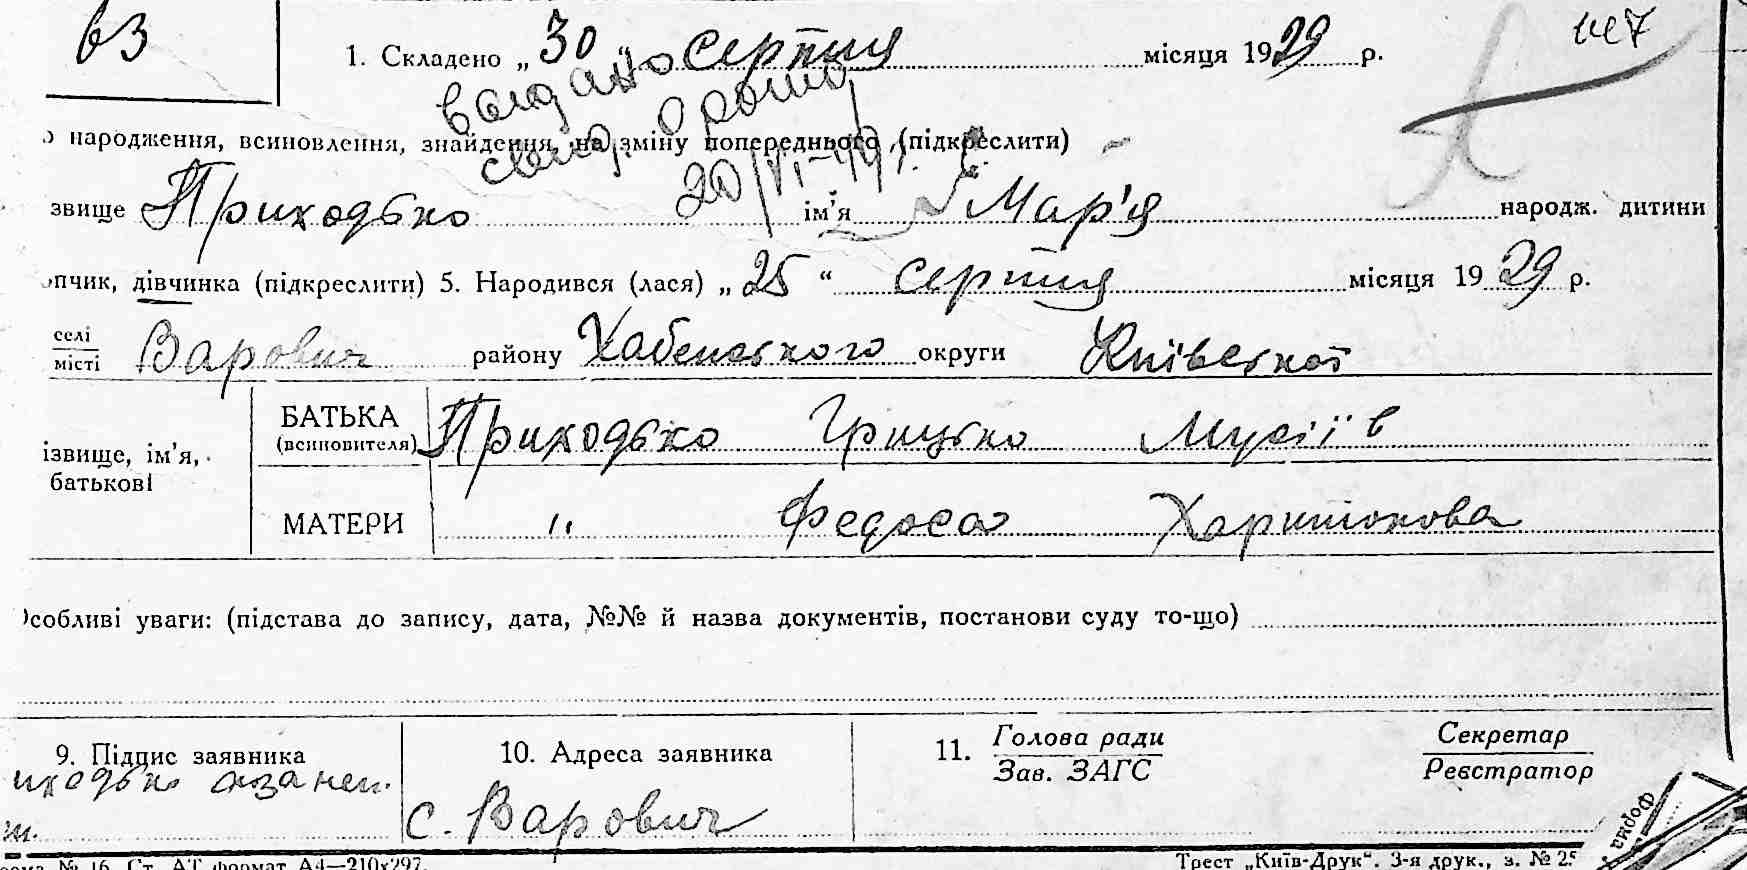 63
1. Складено „30“ серпня місяця 1929 р.
народження, всиновлення, знайдення, на зміну попереднього (підкреслити)
звище Приходько ім’я Мар'я народж. дитини
пчик, дівчинка (підкреслити) 5. Народився (лася) „25“ серпня місяця 1929 р.
селі
містіВарович району Хабенського округи Київської
ізвище, ім’я, батькові
БАТЬКА (всиновителя) Приходько Грицько Мусіїв
МАТЕРИ " Федоса Харитонова
собливі уваги: (підстава до запису, дата, №№ й назва документів, постанови суду то-що)
9. Підпис заявника
10. Адреса заявника
11. Голова ради
Зав. ЗАГС
Секретар
Реєстратор
иходько
с. Варович
Форма
орма № 16. Ст. АТ формат А4—210х297.
Трест „Київ-Друк“. 3-я друк., з. № 25